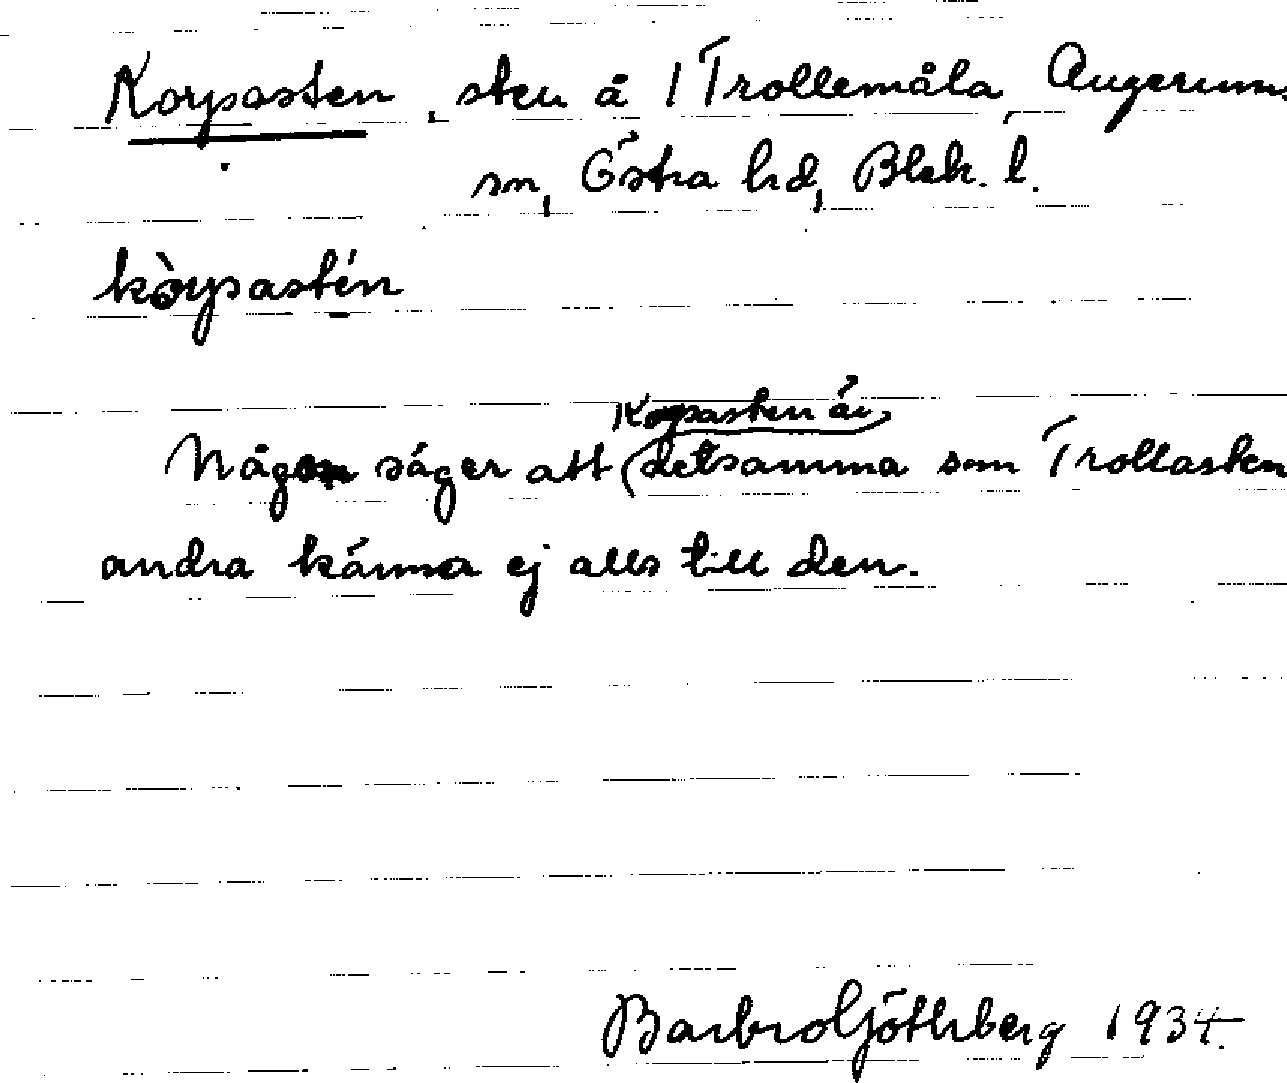 Korpasten, sten å 1 Trollemåla, Augerums
sn, Östra hd, Blek. l.
kòrpastén
Korpasten är
Någon säger att detsamma som Trollasten
andra känna ej alls till den.
Barbro Göthberg 1934.